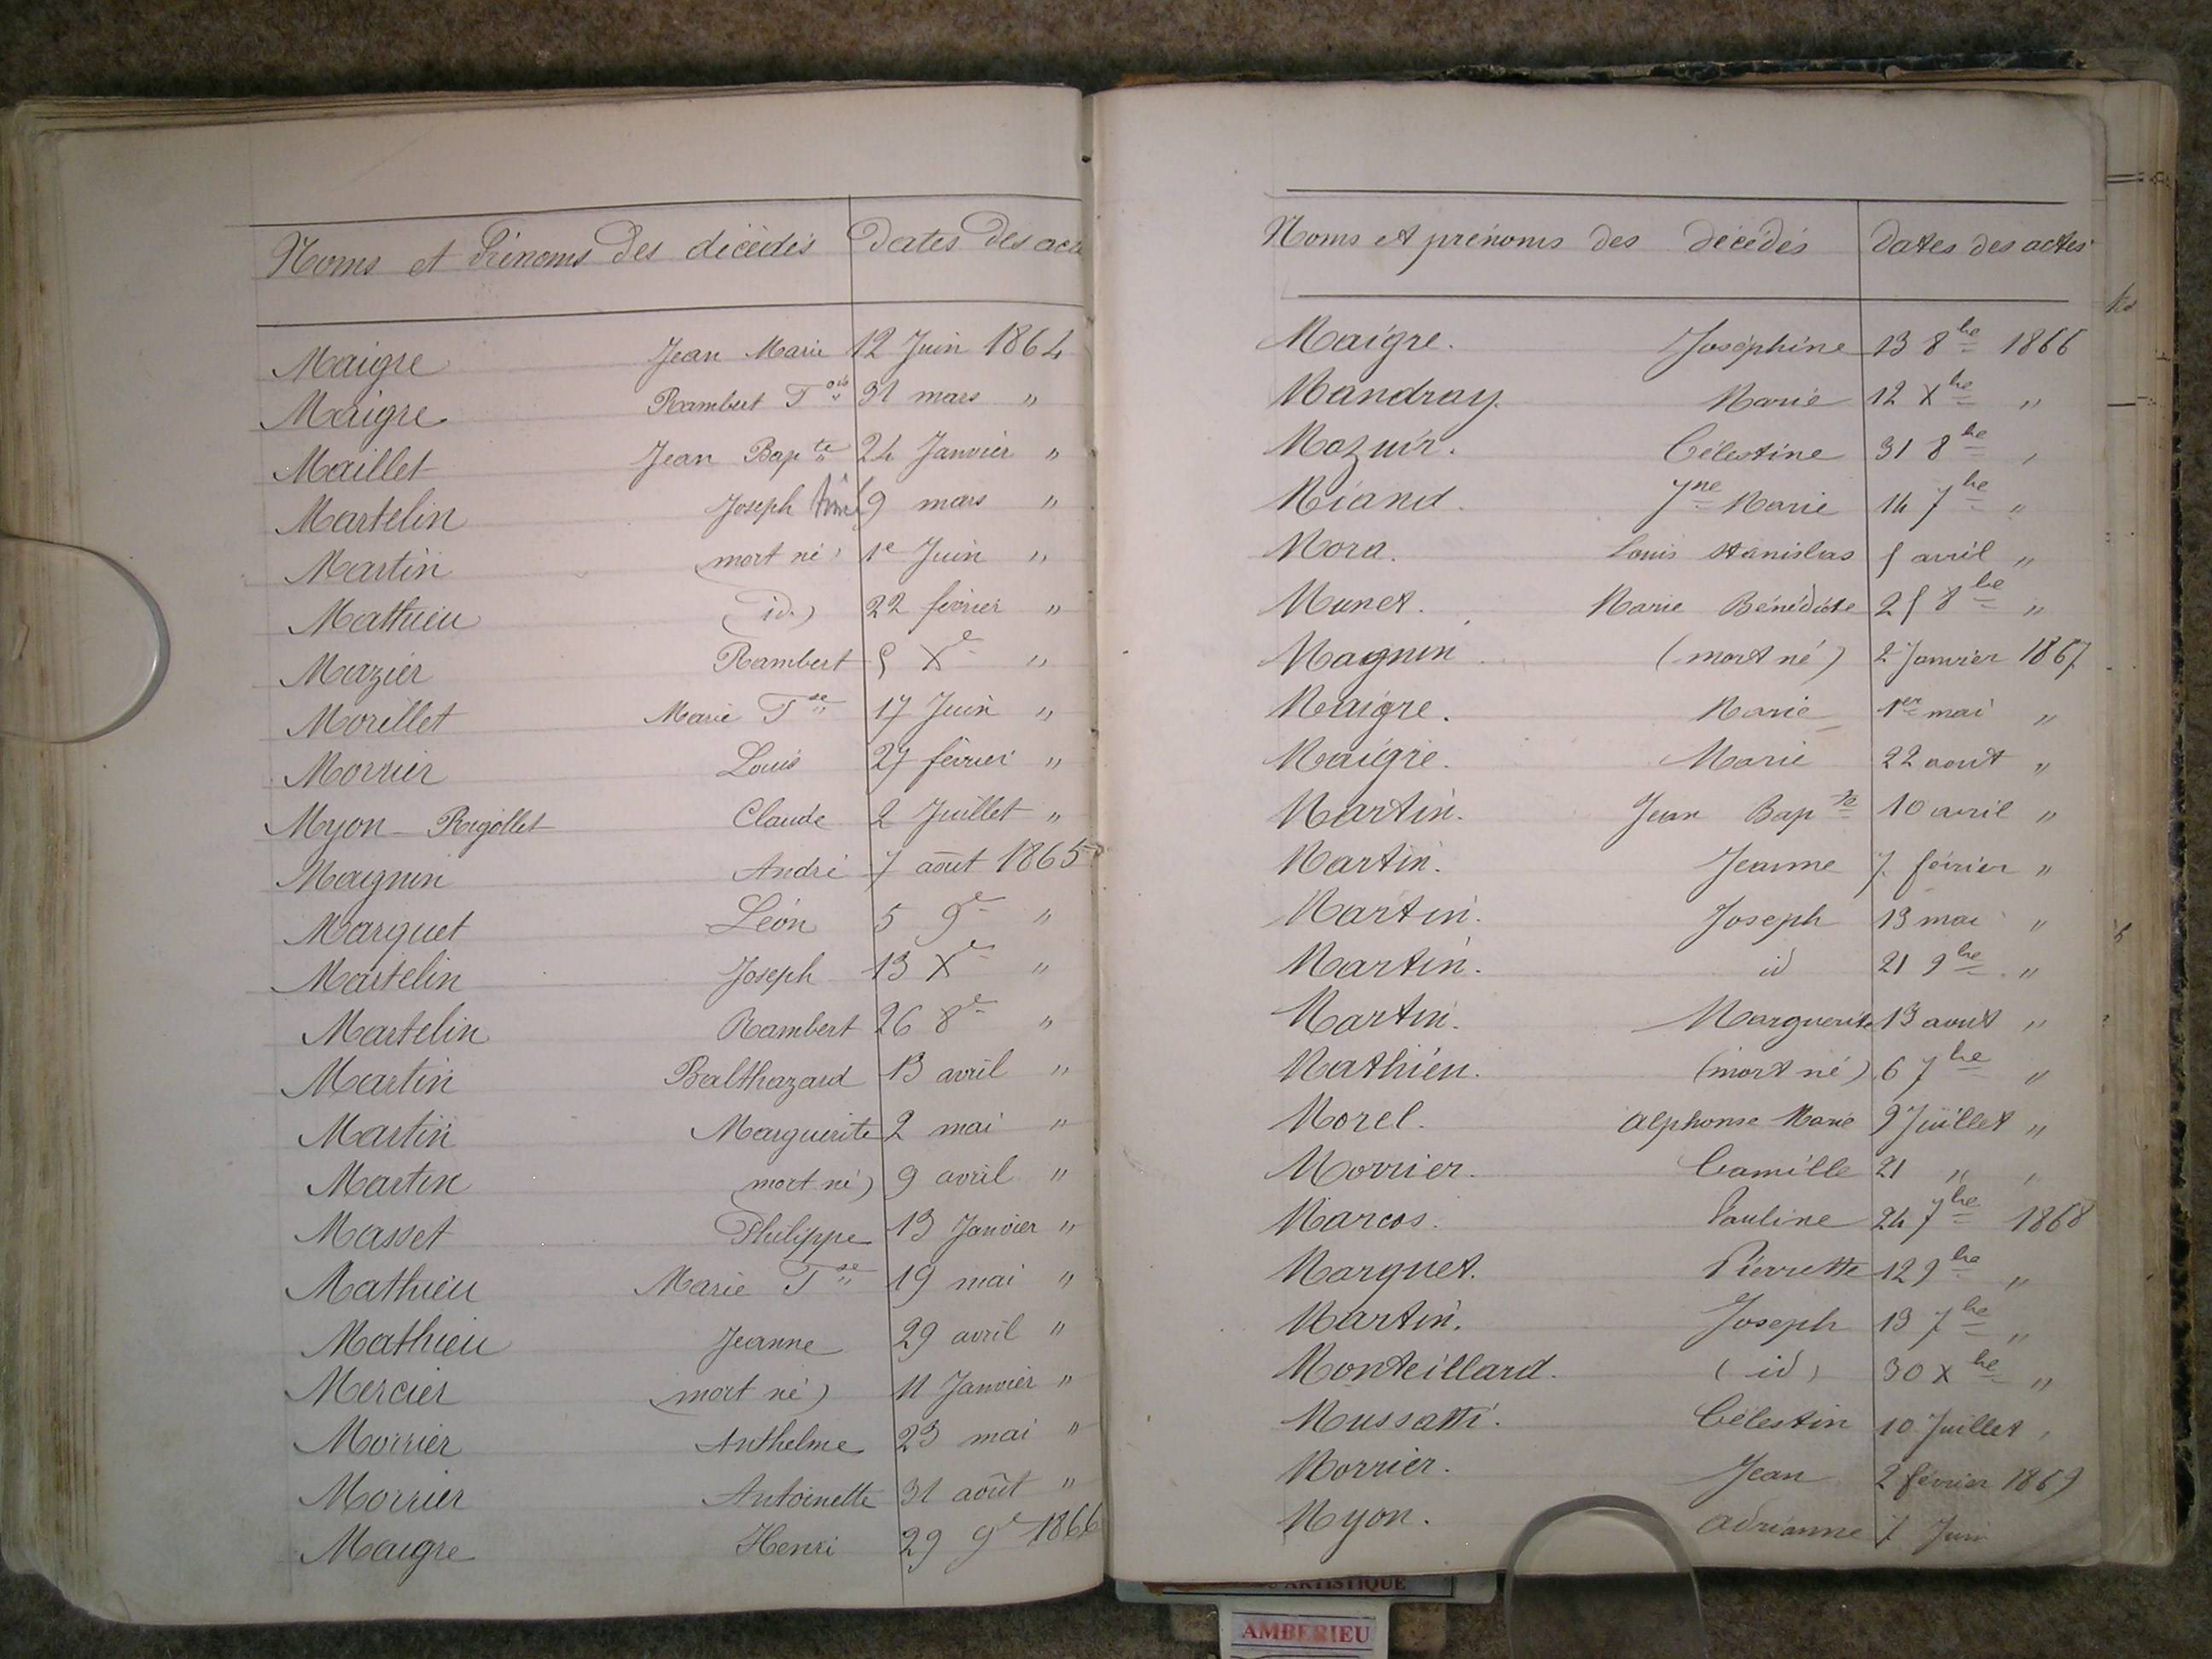 Noms et Prénoms des décédés Dates des act
Maigre Jean Marie 12 Juin 1864
Maigre Rambert F.ois 31 mars "
Maillet Jean Bapte 24 Janvier "
Martelin Joseph 9 mars "
Martin (mort né) 1e Juin "
Mathieu (id.) 22 février "
Mazier Rambert 5 Xe "
Morillet Marie Fse 17 Juin "
Morrier Louis 27 février "
Myon-Rigollet Claude 2 Juillet "
Magnin André 7 août 1865
Marquet Léon 5 9e "
Martelin Joseph 13 Xe "
Martelin Rambert 26 8e "
Martin Balthazard 13 avril "
Martin Marguerite 2 mai "
Martin (mort né) 9 avril "
Masset Philippe 13 Janvier "
Mathieu Marie Fse 19 mai "
Mathieu Jeanne 29 avril "
Mercier (mort né) 11 Janvier "
Morrier Anthelme 23 mai "
Morrier Antoinette 31 août "
Maigre Henri 29 9e 1866
Noms et prénoms des décédés Dates des actes
Maigre. Joséphine 13 8bre 1866
Mandray Marie 12 Xbre "
Mazuir. Célestine 31 8bre "
Miand. Jne Marie 14 7bre "
Mora. Louis Stanislas 5 avril "
Munet. Marie Bénédicte 25 8bre "
Magnin (mort né) 2 Janvier 1867
Maigre. Marie 1er mai "
Maigre. Marie 22 aout "
Martin. Jean Bapte 10 avril "
Martin. Jeanne 7 février "
Martin. Joseph 13 mai "
Martin. id 21 9bre "
Martin. Marguerite 13 aout "
Mathieu. (mort né) 6 7bre "
Morel. Alphonse Marie 9 Juillet "
Morrier. Camille 21 " "
Marcos. Pauline 24 7bre 1868
Marquet. Pierrette 12 9bre "
Martin. Joseph 13 7bre "
Monteillard. (id) 30 Xbre "
Mussatti. Célestin 10 Juillet "
Morrier. Jean 2 février 1869
Myon. Adrianne 7 Juin
ARTISTIQUE
AMBERIEU